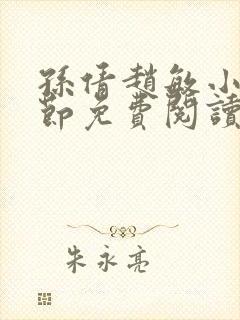 孫倩趙敏小
節免費閱讀
朱永亮